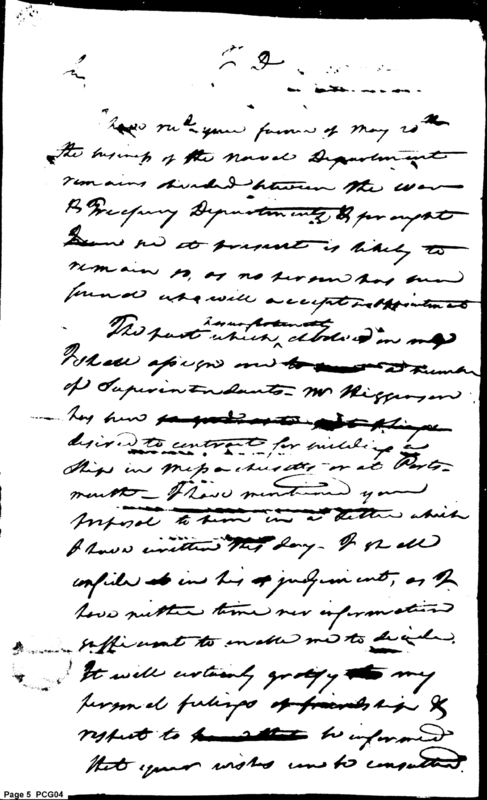 I have recd. your favour of May 20th
The business of the Naval Department
remains divided between the War
& Treasury Departments & for aught
I see at present is likely to
remain so, as no person has been
found who will accept
The part which has unfortunately devolved on me
I shall assign one to a number
of Superintendants – Mr Higginson
has been
desired to contract for building a
Ship in Massachusetts or at Ports-
mouth – I have mentioned your
proposal to him in a letter which
I have written this day – I shall
confide in his judgement, as I
have neither time nor information
sufficient to enable me to decide.
It will certainly gratify my
personal feelings of friendship &
respect to be informed
that your wishes can be consulted.
Page 5 PCG04